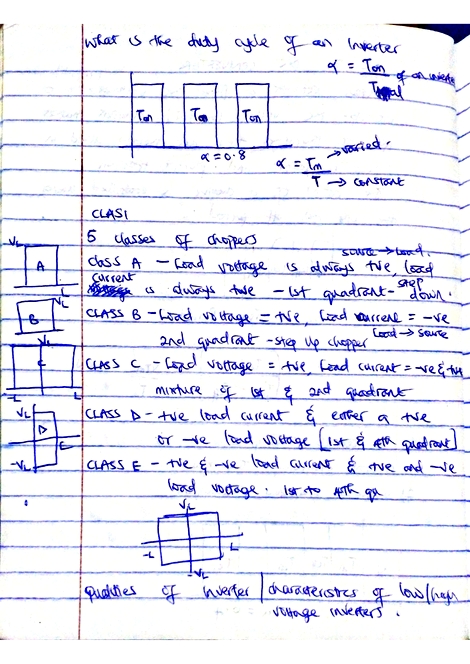 What is the duty cycle of an Inverter
α = Ton of an inverter
Ton Ton Ton
α = 0.8
α = Ton → varied.
T → constant
CLAS1
5 classes of choppers
source → Load.
VL
A
L
Class A – Load voltage is always +ve, load
current is always +ve – 1st quadrant – step down.
VL
B
CLASS B – Load voltage = +ve, Load current = –ve
Load → source
2nd quadrant – step up chopper
VL
C
CLASS C – Load voltage = +ve, Load current = –ve & +ve
mixture of 1st & 2nd quadrant
VL
D
E
–VL
CLASS D – +ve load current & either a +ve
or –ve load voltage [1st & 4th quadrant]
CLASS E – +ve & –ve load current & +ve and –ve
load voltage. 1st to 4th qu
VL
–L L
–VL
Qualities of Inverter | characteristics of low/high
voltage inverters.